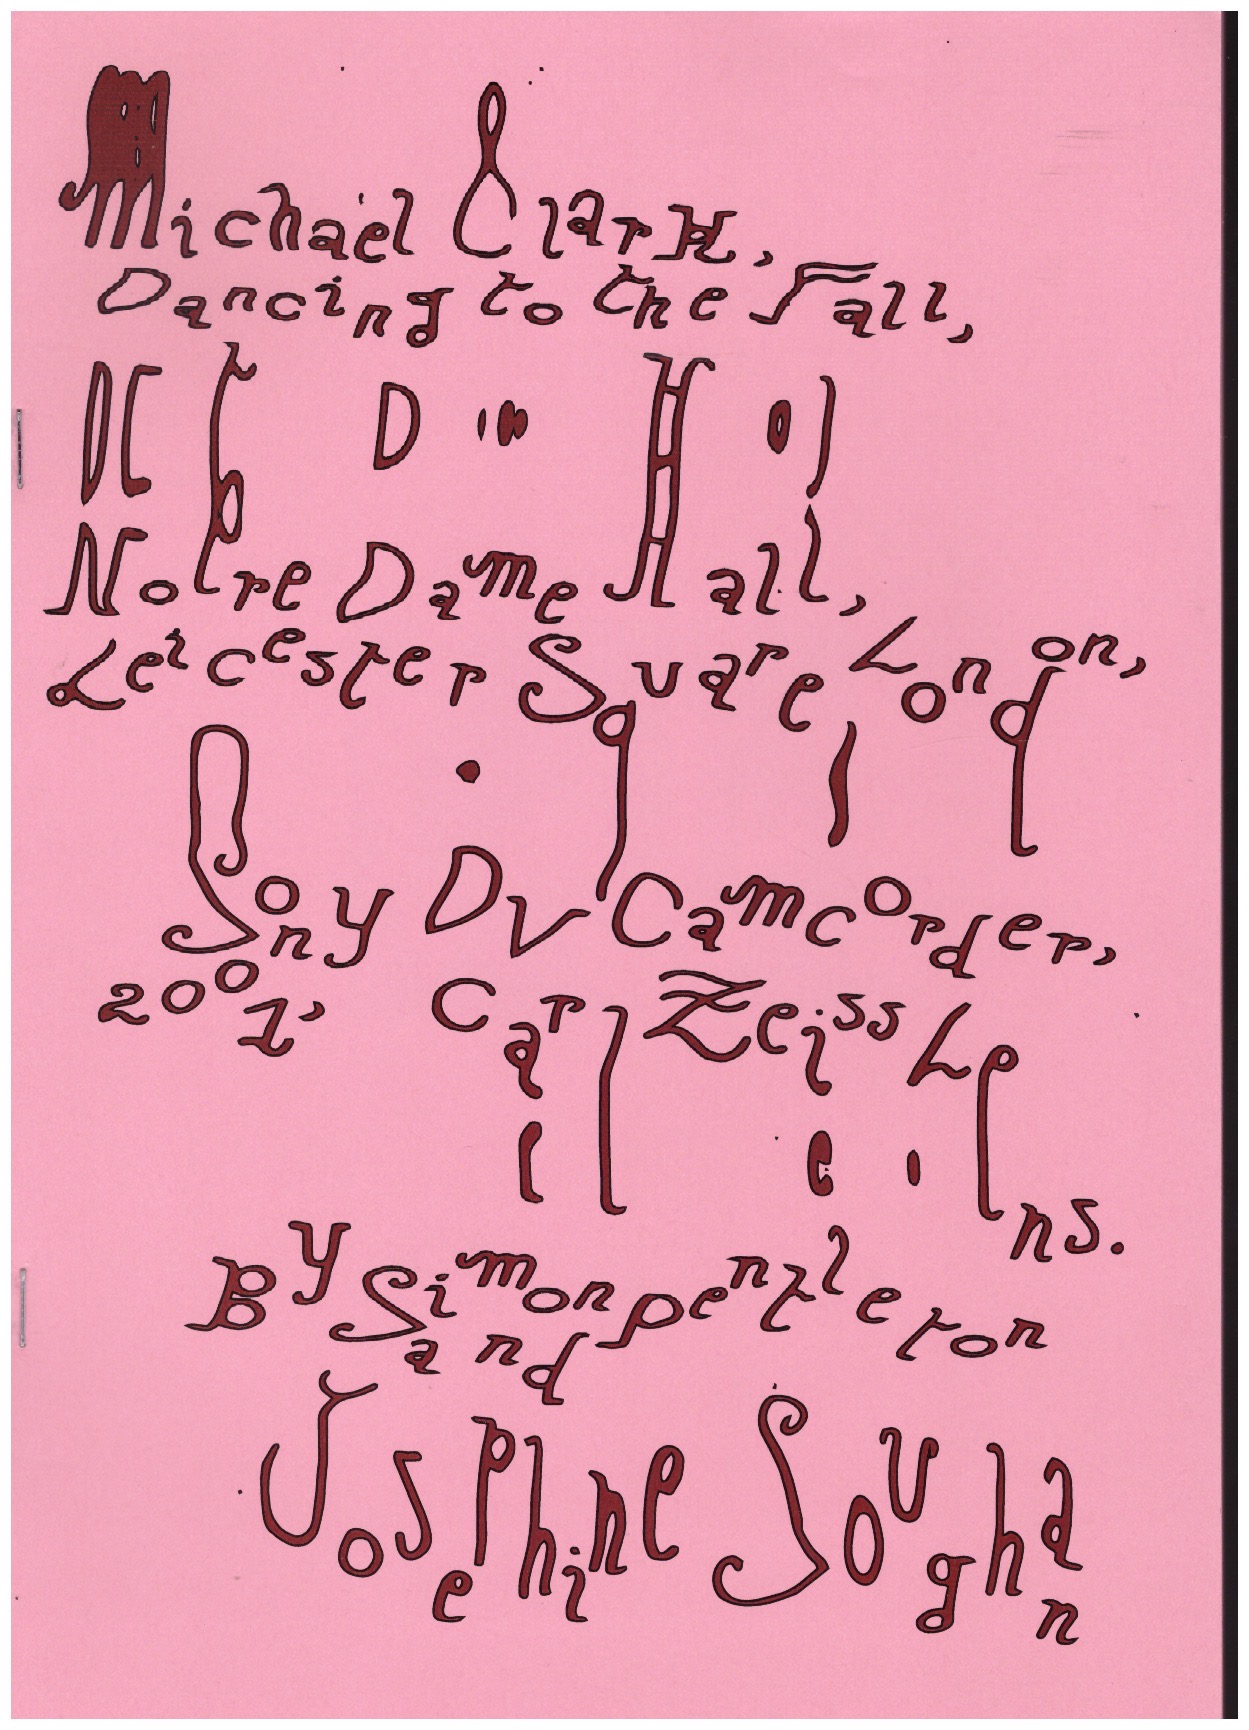 Michael Clark,
Dancing to the Fall,
Notre Dame Hall,
Leicester Square London,
Sony DV Camcorder,
2001, Carl Zeiss Lens.
By Simon pentleton
and
Josephine Soughan